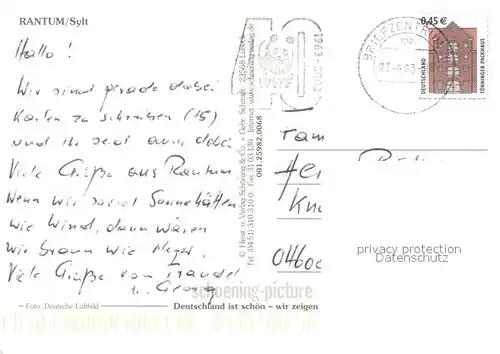 RANTUM/Sylt
Hallo!
Wir sind gerade dabei
Karten zu schreiben (15)
und ihr seid auch dabei
Viele Grüße aus Rantum
Wenn wir soviel Sonne hätten
wie Wind, dann wären
wir braun wie Neger.
Viele Grüße von Traudel
u. Georg
– Foto: Deutsche Luftbild
Deutschland ist schön – wir zeigen
© Herst. u. Verlag Schöning & Co. + Gebr. Schmidt · 23568 Lübeck
Tel. (0451) 310 320 · Fax 31 03 130 · Internet: www.schoening-verlag
001.25982.0068
40
1963-2003
BRIEFZENTRUM
0,45 €
DEUTSCHLAND
TÖNNINGER PACKHAUS
Fam
0460
privacy protection
Datenschutz
schoening-picture